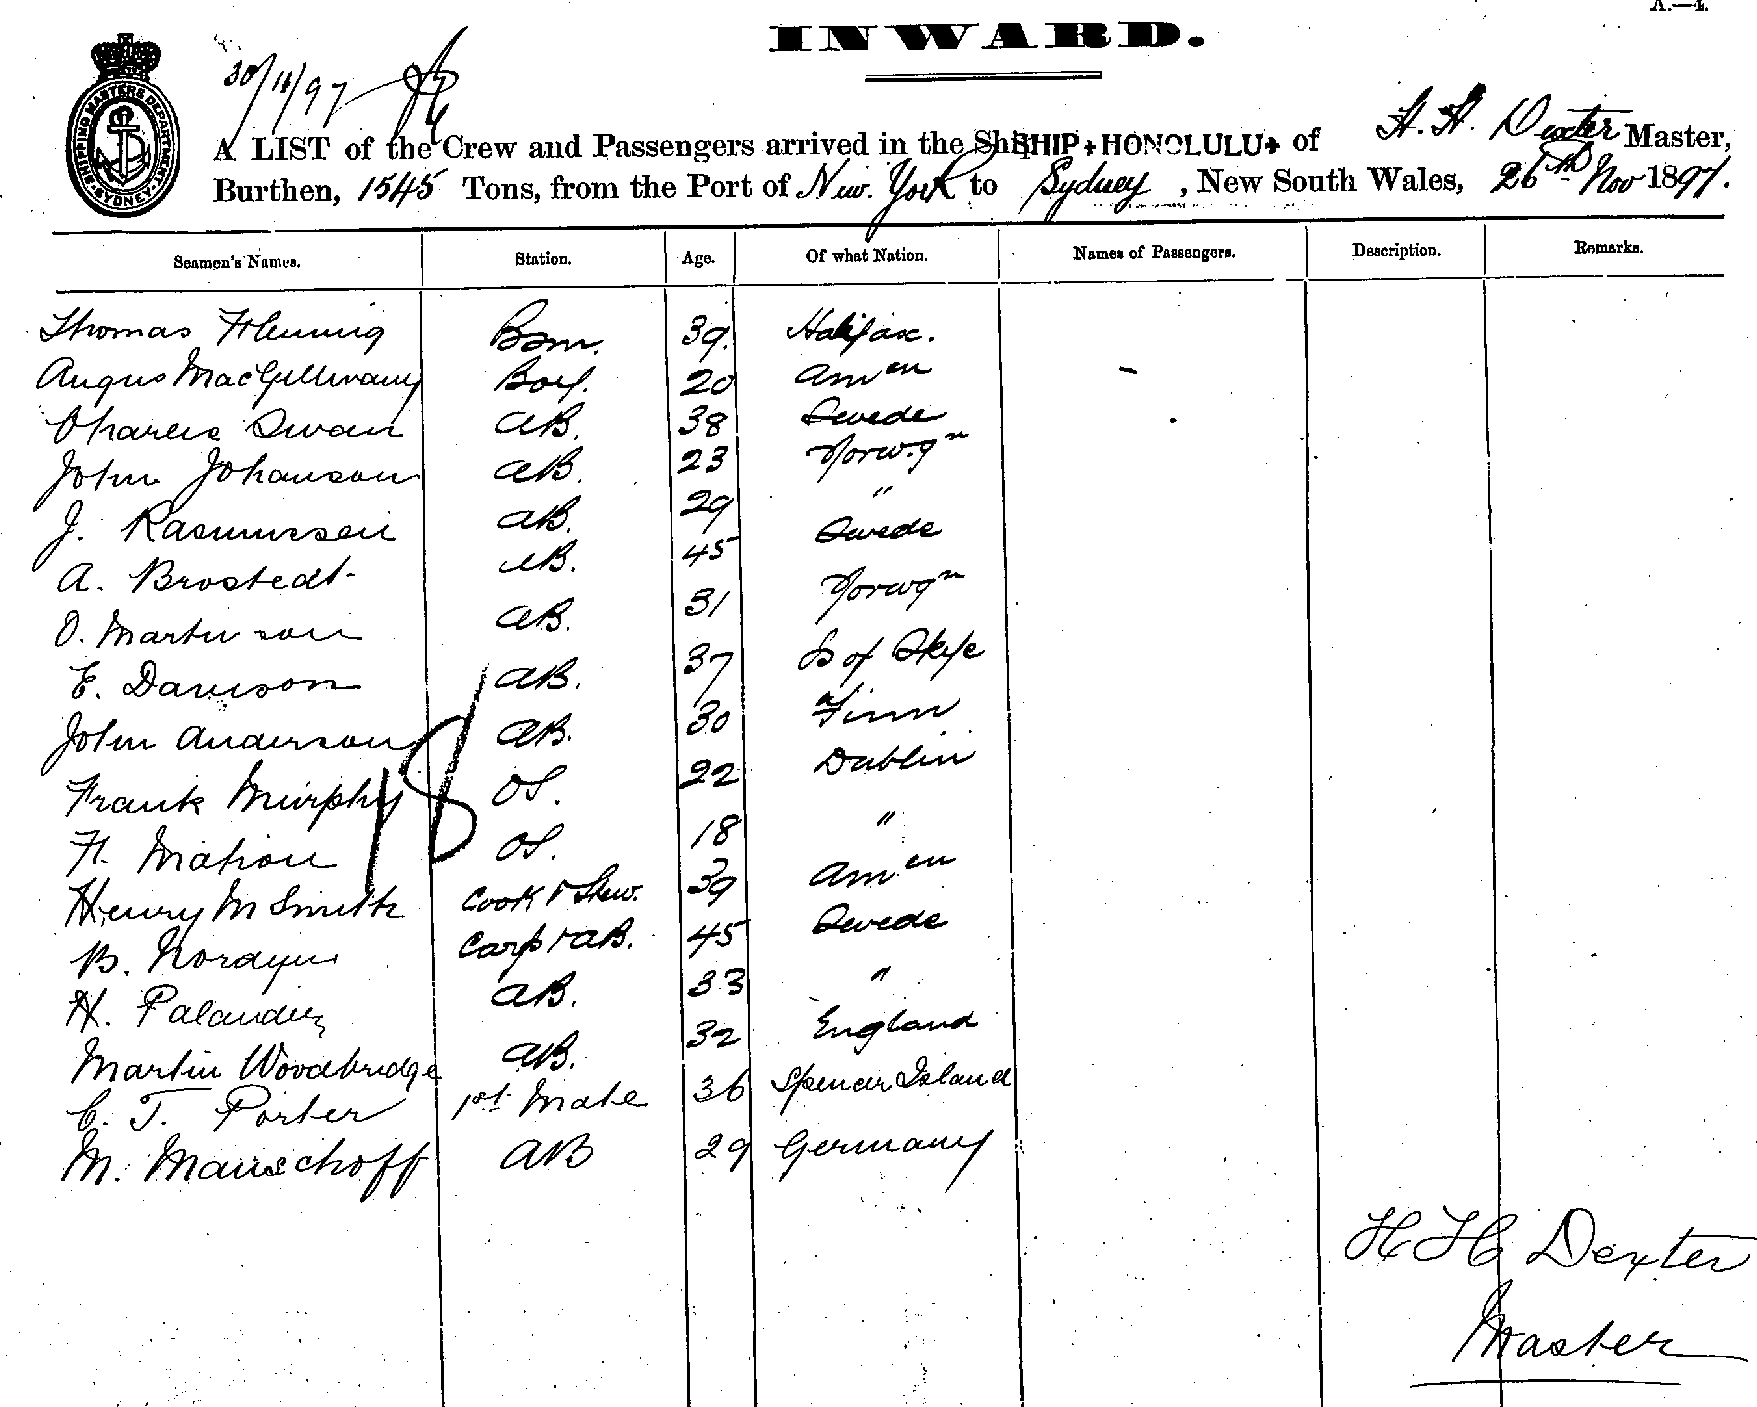 A.—4.
INWARD.
30/11/97
SHIPPING MASTERS DEPARTMENT SYDNEY
A LIST of the Crew and Passengers arrived in the Ship SHIP HONOLULU of H. H. Dexter Master,
Burthen, 1545 Tons, from the Port of New York to Sydney, New South Wales, 26th Nov 1897.
Seamen's Names. Station. Age. Of what Nation. Names of Passengers. Description. Remarks.
Thomas Fleming Bosn. 39. Halifax.
Angus MacGillivany Boy. 20 Amen
Charles Swan AB. 38 Swede
John Johanson AB. 23 Norwgn
J. Rasmussen AB. 29 "
A. Brostedt AB. 45 Swede
O. Martinson AB. 31 Norwgn
E. Davison AB. 37 Is of Skye
John Anderson AB. 30 Finn
Frank Murphy OS. 22 Dublin
H. Mahon OS. 18 "
18
Henry M Smith Cook & Stew. 39 Amen
B. Nordgin Carp & AB. 45 Swede
H. Palander AB. 33 "
Martin Woodbridge AB. 32 England
C. T. Porter 1st Mate 36 Spencer Island
M. Manschoff AB 29 Germany
H H Dexter
Master